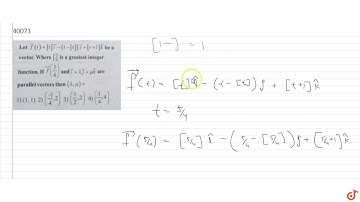 40073
Let f⃗(t) = [t]î − (t − [t])ĵ + [t + 1]k̂ be a
vector. Where [.] is a greatest integer
function. If f⃗(5/4) and î + λĵ + μk̂ are
parallel vectors then (λ, μ) =
1) (1, 1) 2) (−1/4, 2) 3) (1/2, 2) 4) (1/4, 4)
[1—] = 1
f⃗(t) = [t]î − (t − [t])ĵ + [t+1]k̂
t = 5/4
f⃗(5/4) = [5/4]î − (5/4 − [5/4])ĵ + [5/4+1]k̂
doubtnut